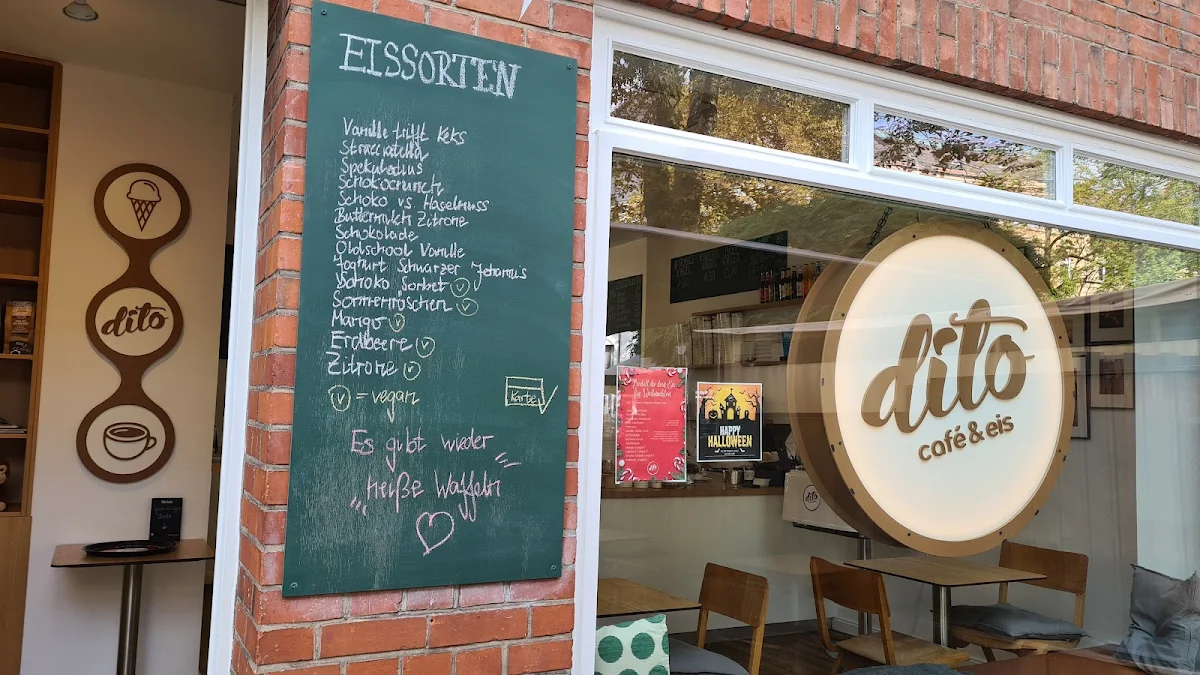 EISSORTEN
Vanille trifft Keks
Stracciatella
Spekulatius
Schokocrunch
Schoko vs Haselnuss
Buttermilch Zitrone
Schokolade
Oldschool Vanille
Joghurt Schwarzer Johannis
Schoko Sorbet V
Sommerröschen V
Mango V
Erdbeere V
Zitrone V
V = vegan
Karte
Es gibt wieder
"heiße Waffeln"
dito
HAPPY
HALLOWEEN
dito
dito
café & eis